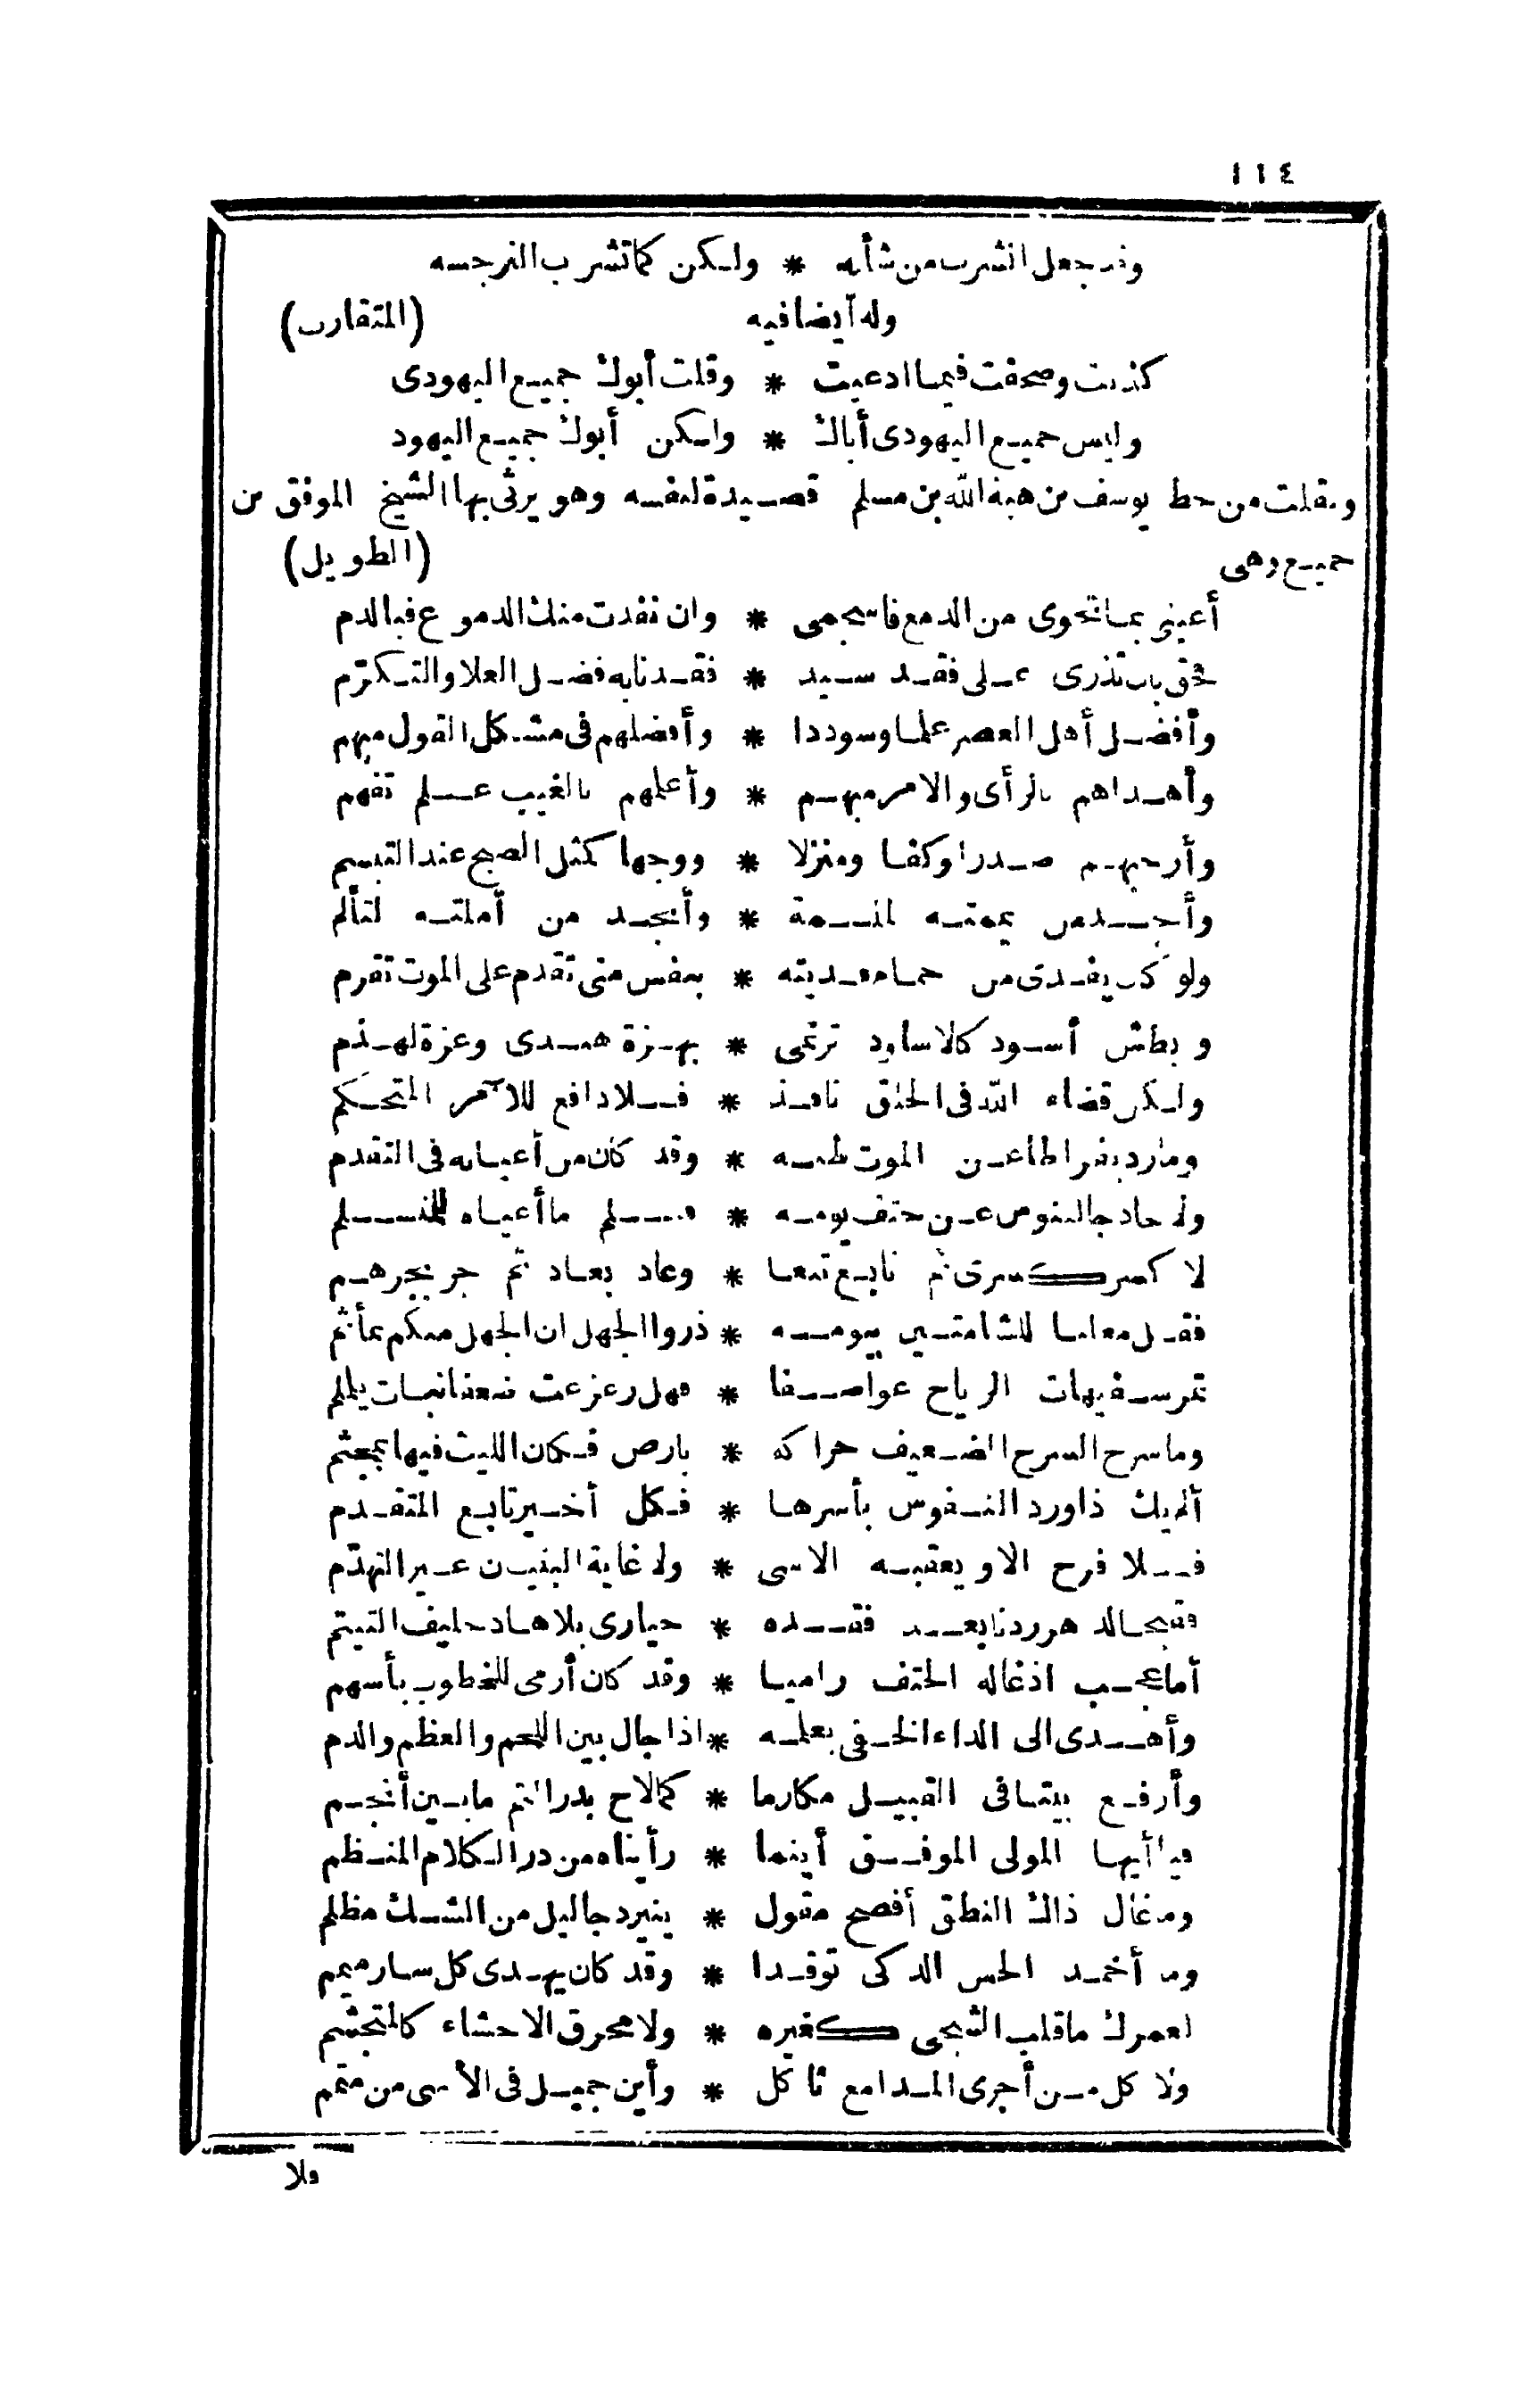 ١١٤
وقد جعل الشرب من شأنه * ولكن كما تشرب النرجسه
وله أيضا فيه (المتقارب)
كذبت وصحفت فيما ادعيت * وقلت أبوك جميع اليهودى
وليس جميع اليهودى أباك * ولكن أبوك جميع اليهود
ونقلت من خط يوسف بن هبة الله بن مسلم قصيدة لنفسه وهو يرثى بها الشيخ الموفق بن
جميع وهى (الطويل)
أعينى بما تحوى من الدمع فاسجمى * وان نفدت منك الدموع فبالدم
فحق بان تذرى على فقد سيد * فقدنا به فضل العلا والتكرم
وأفضل أهل العصر علما وسوددا * وأفضلهم فى مشكل القول مبهم
وأهداهم بالرأى والامر مبهم * وأعلمهم بالغيب علم تفهم
وأرحبهم صدرا وكفا ومنزلا * ووجها كمثل الصبح عند التبسم
وأنجد من أملته لتألم
ولو كان يفدى من حمام فديته * بنفس متى تقدم على الموت تقرم
وبطش أسود كالاساود ترتمى * بهزة هندى وعزة لهذم
ولكن قضاء الله فى الخلق نافذ * فلا دافع للآمر المتحكم
وما رد بقراطا عن الموت طبه * وقد كان من أعيانه فى التقدم
ولا حاد جالينوس عن حتف يومه * فسلم ما أعياه للمسلم
ولا كسر كسرى ثم تابع تبعا * وعاد بعاد ثم جر بجرهم
فقل معلنا للشامتين بيومه * ذروا الجهل ان الجهل منكم بمأثم
تمر سفيهات الرياح عواصفا * فهل زعزعت ضعفا نبات يلملم
وما سرح السرح الضعيف حراكه * بارض فكان الليث فيها بمجثم
أليك ذا ورد النفوس بأسرها * فكل أخير تابع المتقدم
فلا فرح الا ويعقبه الاسى * ولا غاية البنيان غير التهدم
فقبحا لدهر ردنا بعد فقده * حيارى بلا هاد حليف التيتم
أما عجب اذ غاله الحتف راميا * وقد كان أرمى للخطوب بأسهم
وأهدى الى الداء الخفى بعلمه * اذا جال بين اللحم والعظم والدم
وأرفع بيتا فى القبيل مكارما * كما لاح بدر التم ما بين أنجم
فيا أيها المولى الموفق أينما * رأيناه من در الكلام المنظم
وما غال ذاك النطق أفصح مقول * ينير دجا ليل من الشك مظلم
وما أخمد الحس الذكى توقدا * وقد كان يهدى كل سار ميمم
لعمرك ما قلب الشجى كغيره * ولا محرق الاحشاء كالمتجشم
ولا كل من أجرى المدامع ثاكل * وأين جميل فى الأسى من متمم
ولا